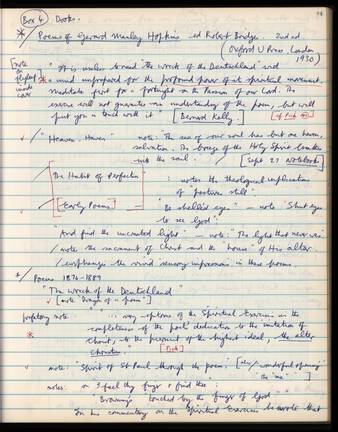 18
Box 4 Books.
* / Poems of Gerard Manley Hopkins ed Robert Bridges 2nd ed
(Oxford U Press, London
1930)
[note on flyleaf inside cover "It is unless to read 'the wreck of the Deutschland' with
* a mind unprepared for the profound power of its spiritual movement.
Meditate first for a fortnight on the Passion of our Lord. The
exercise will not guarantee an understanding of the poem, but will
put you in touch with it" [Bernard Kelly.]
/ "Heaven-Haven" note: The sea of our soul has but one haven,
salvation. The breeze of the Holy Spirit
the soul. / [Sept 27 Notebook]
The Habit of Perfection : notes the theological implication
of "posture still"
[Early Poems] — "Be shellèd eyes" — note "Shut eyes
to see God".
"And find the uncreated light" — note: "The light that never was"
/ note the sacrament of Christ and the "house" of His altar
/ emphasizes the vivid sensory impression in these poems.
* / Poems 1876-1889
"The wreck of the Deutschland"
[note "Image of a poem"]
prefatory note: "... very options of the Spiritual Exercises in the
completeness of the poet's dedication to the imitation of
* Christ, to the pursuit of the highest ideal, the alter
Christus." [Pick]
note: "Spirit of St Paul through the poem" [also / wonderful opening
the "me"]
notes: on I feel thy finger & find thee:
"Being touched by the finger of God
In his commentary on the Spiritual Exercises he wrote that